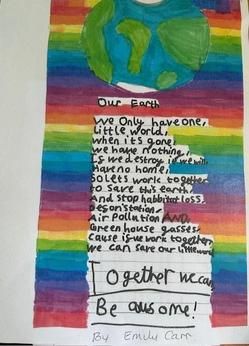 Our Earth
We Only have one,
little world,
when it's gone,
we have nothing,
Is we destroy it we will
Have no home,
So lets work together
to save this earth,
And stop habbitat loss.
Desonstation.
Air Pollution AND,
Green house gasses,
Cause is we work together,
we can save our little world
Together we can
Be awsome!
By Emily Carr